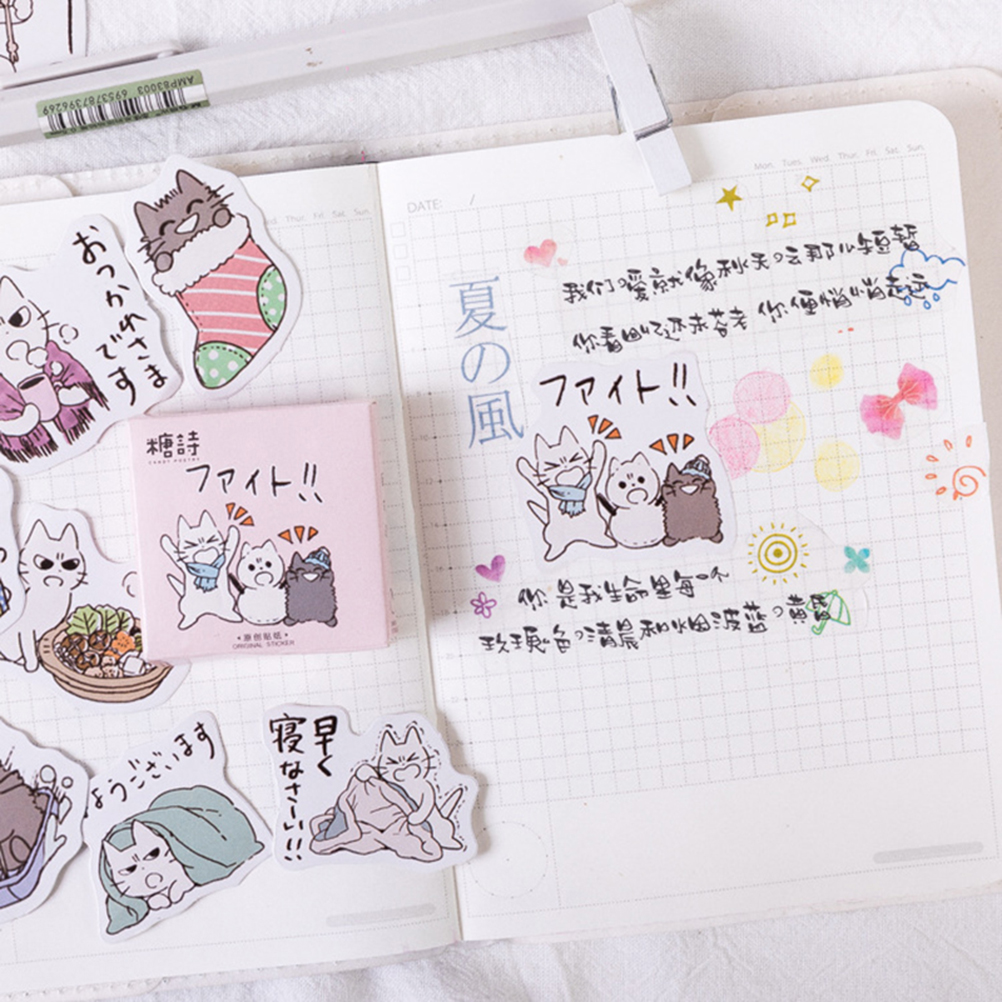 AMP83003 6953787396269
おつかれさま
です
糖詩
CANDY POETRY
ファイト!!
•原创贴纸•
ORIGINAL STICKER
ようございます
早く
寝なさーい!!
Thur. Fri. Sat. Sun.
DATE: /
Mon. Tues. Wed. Thur. Fri. Sat. Sun.
夏の風
我们的爱就像秋天的云那么短暂
你看中以还未苍老 你便悄悄走远
ファイト!!
你是我生命里每一个
玫瑰色的清晨和烟波蓝的黄昏